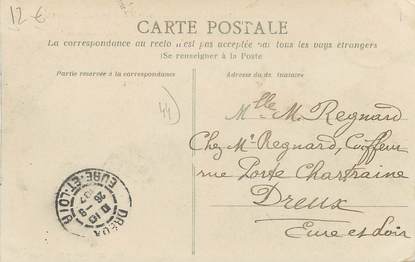 12 €
CARTE POSTALE
La correspondance au recto n'est pas acceptée par tous les pays étrangers
(Se renseigner à la Poste)
Partie réservée à la correspondance
Adresse du destinataire
44
Mlle M. Regnard
Chez Mr Regnard, Coiffeur
rue Porte Chartraine
Dreux
Eure et Loir
DREUX
EURE-ET-LOIR